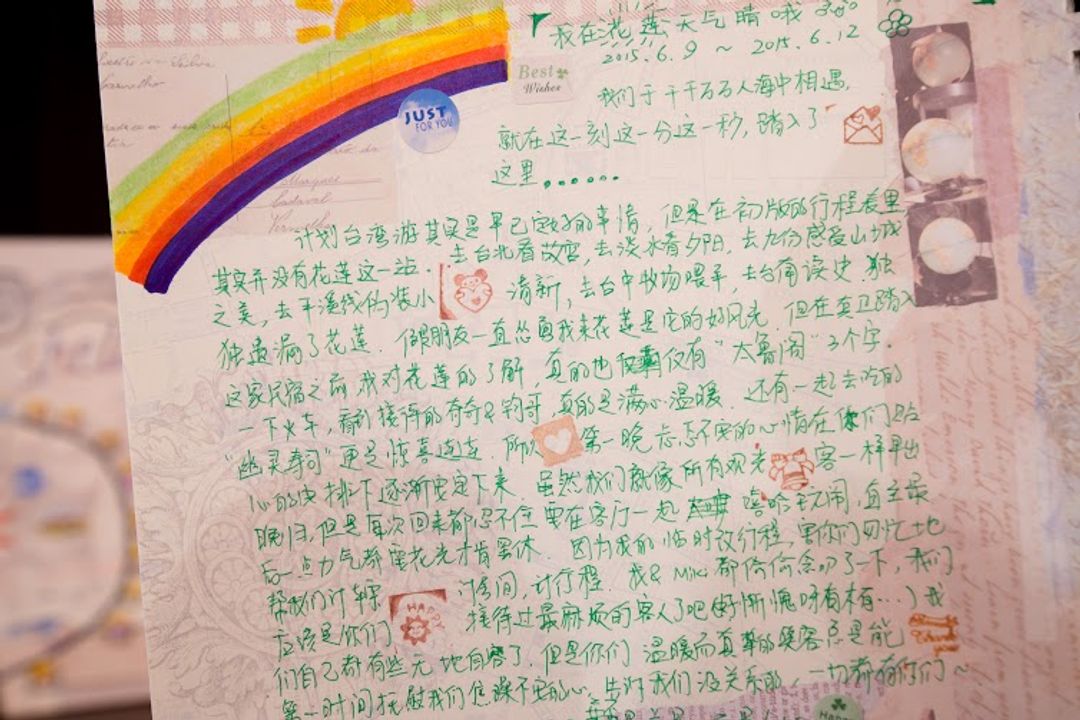 我在花莲天气晴哦
2015.6.9 ~ 2015.6.12
Best
Wishes
JUST
FOR YOU
我们于千千万万人海中相遇,
就在这一刻这一分这一秒,踏入了
这里......
计划台湾游其实是早已定好的事情,但是在初版的行程表里,
其实并没有花莲这一站.去台北看故宫,去淡水看夕阳,去九份感受山城
之美,去平溪线伪装小清新,去台中牧场喂羊,去台南读史.独
独遗漏了花莲.但朋友一直怂恿我来花莲是它的好风光.但在查卫踏入
这家民宿之前,我对花莲的了解,真的也仅仅有“太鲁阁”3个字.
一下火车,看到接待的奇奇&钧哥,真的是满心温暖.还有一起去吃的
“幽灵寿司”更是惊喜连连.所以第一晚忐忑不安的心情在你们贴
心的安排下逐渐安定下来.虽然我们就像所有观光客一样早出
晚归,但是每次回来都忍不住要在客厅一起嘻哈玩闹,直至最
后一点力气都要花光才肯罢休.因为我的临时改行程,害你们回忆地
帮我们计算房间,计行程.我& Miki 都偷偷念叨了一下,我们
应该是你们接待过最麻烦的客人了吧(好惭愧呀有木有...)我
们自己都有些无地自容了.但是你们温暖而真挚的笑容总是能
第一时间抚慰我们焦躁不安的心.告诉我们没关系的,一切都有你们~
HAPPY